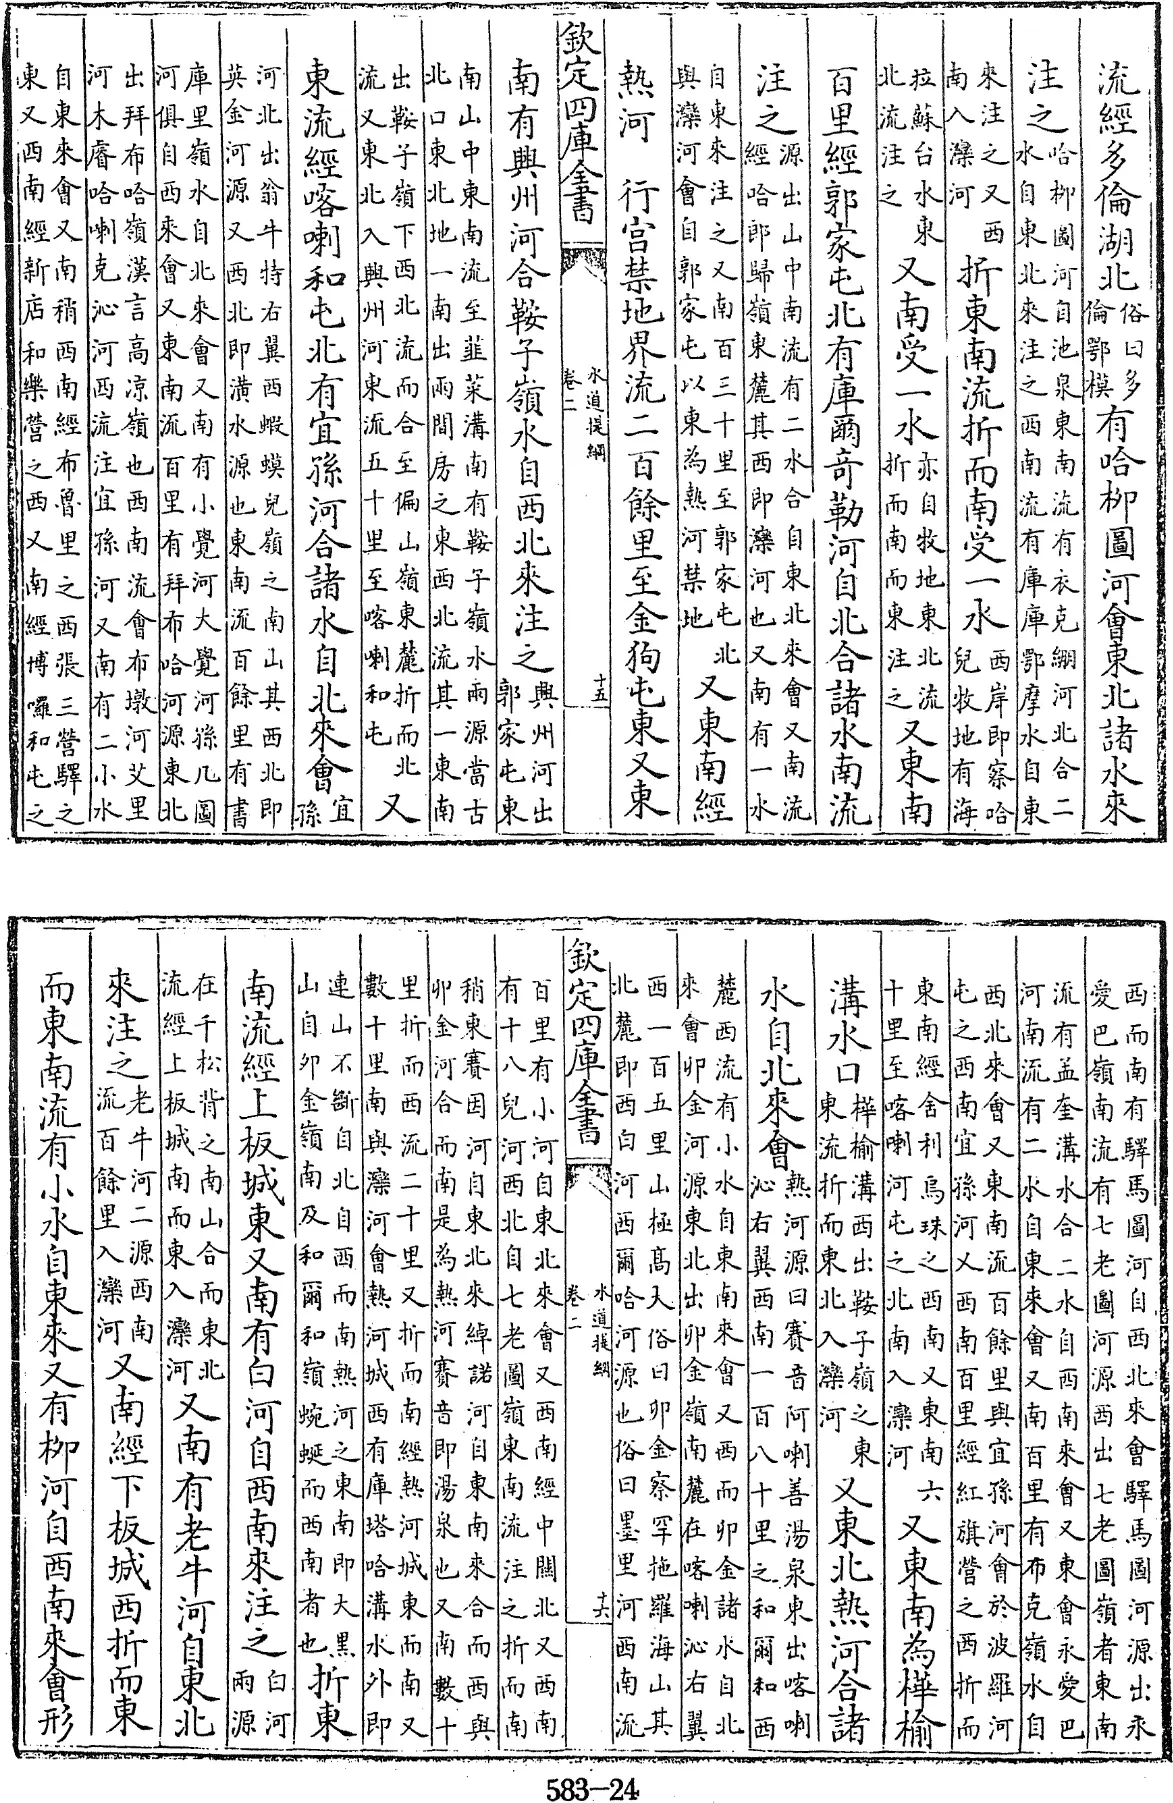 流經多倫湖北俗曰多倫鄂模有哈柳圖河會東北諸水來
注之哈柳圖河自池泉東南流有衣克綳河北合二水自東北來注之西南流有庫庫鄂摩水自東
來注之又西南入灤河折東南流折而南受一水西岸即察哈兒牧地有海
拉蘇台水東北流注之又南受一水亦自牧地東北流折而南而東注之又東南
百里經郭家屯北有庫爾奇勒河自北合諸水南流
注之源出山中南流有二水合自東北來會又南流經哈郎歸嶺東麓其西即灤河也又南有一水
自東來注之又南百三十里至郭家屯北與灤河會自郭家屯以東為熱河禁地又東南經
熱河 行宮禁地界流二百餘里至金狗屯東又東
欽定四庫全書 水道提綱 卷二 十五
南有興州河合鞍子嶺水自西北來注之興州河出郭家屯東
南山中東南流至韮菜溝南有鞍子嶺水兩源當古北口東北地一南出兩間房之東西北流其一東南
出鞍子嶺下西北流而合至偏山嶺東麓折而北流又東北入興州河東流五十里至喀喇和屯又
東流經喀喇和屯北有宜孫河合諸水自北來會宜孫
河北出翁牛特右翼西蝦蟆兒嶺之南山其西北即英金河源又西北即潢水源也東南流百餘里有書
庫里嶺水自北來會又南有小覺河大覺河孫几圖河俱自西來會又東南流百里有拜布哈河源東北
出拜布哈嶺漢言高涼嶺也西南流會布墩河艾里河木睿哈喇克沁河西流注宜孫河又南有二小水
自東來會又南稍西南經布魯里之西張三營驛之東又西南經新店和樂營之西又南經博囉和屯之
西而南有驛馬圖河自西北來會驛馬圖河源出永愛巴嶺南流有七老圖河源西出七老圖嶺者東南
流有孟奎溝水合二水自西南來會又東會永愛巴河南流有二水自東來會又南百里有布克嶺水自
西北來會又東南流百餘里與宜孫河會於波羅河屯之西南宜孫河又西南百里經紅旗營之西折而
東南經舍利烏珠之西南又東南六十里至喀喇河屯之北南入灤河又東南為樺榆
溝水口樺榆溝西出鞍子嶺之東東流折而東北入灤河又東北熱河合諸
水自北來會熱河源曰賽音阿喇善湯泉東出喀喇沁右翼西南一百八十里之和爾和西
麓西流有小水自東南來會又西而卯金諸水自北來會卯金河源東北出卯金嶺南麓在喀喇沁右翼
西一百五里山極高大俗曰卯金察罕拖羅海山其北麓即西白河西爾哈河源也俗曰墨里河西南流
欽定四庫全書 水道提綱 卷二 十六
百里有小河自東北來會又西南經中關北又西南有十八兒河西北自七老圖嶺東南流注之折而南
稍東賽因河自東北來綽諾河自東南來合而西與卯金河合而南是為熱河賽音即湯泉也又南數十
里折而西流二十里又折而南經熱河城東而南又數十里南與灤河會熱河城西有庫塔哈溝水外即
連山不斷自北自西而南熱河之東南即大黑山自卯金嶺南及和爾和嶺蜿蜒而西南者也折東
南流經上板城東又南有白河自西南來注之白河兩源
在千松背之南山合而東北流經上板城南而東入灤河又南有老牛河自東北
來注之老牛河二源西南流百餘里入灤河又南經下板城西折而東
而東南流有小水自東來又有柳河自西南來會形
583—24